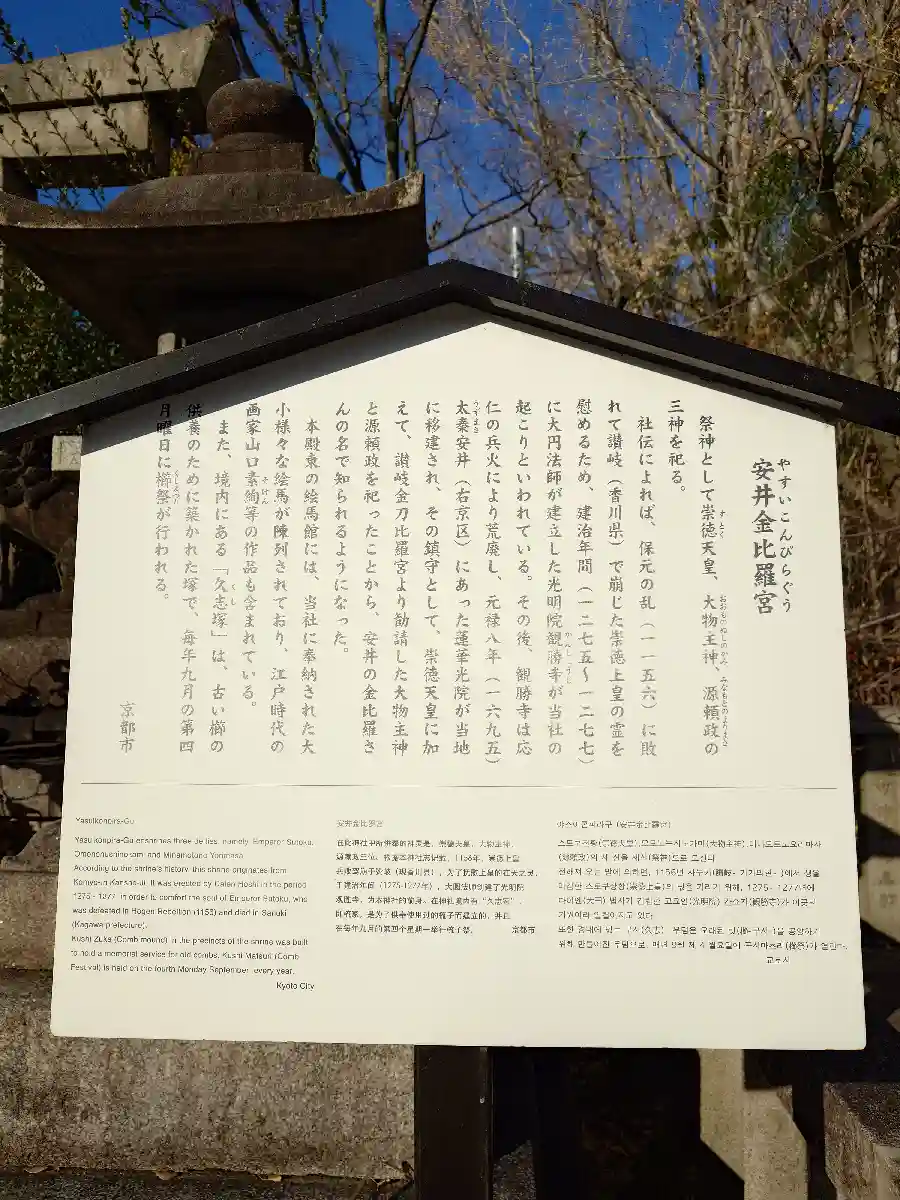 やすいこんぴらぐう
安井金比羅宮
祭神として崇徳天皇、大物主神、源頼政の
三神を祀る。
社伝によれば、保元の乱(一一五六)に敗
れて讃岐(香川県)で崩じた崇徳上皇の霊を
慰めるため、建治年間(一二七五〜一二七七)
に大円法師が建立した光明院観勝寺が当社の
起こりといわれている。その後、観勝寺は応
仁の兵火により荒廃し、元禄八年(一六九五)
太秦安井(右京区)にあった蓮華光院が当地
に移建され、その鎮守として、崇徳天皇に加
えて、讃岐金刀比羅宮より勧請した大物主神
と源頼政を祀ったことから、安井の金比羅さ
んの名で知られるようになった。
本殿東の絵馬館には、当社に奉納された大
小様々な絵馬が陳列されており、江戸時代の
画家山口素絢等の作品も含まれている。
また、境内にある「久志塚」は、古い櫛の
供養のために築かれた塚で、毎年九月の第四
月曜日に櫛祭が行われる。
京都市
Yasuikonpira-Gu
Yasuikonpira-Gu enshrines three deities, namely, Emperor Sutoku,
Omononushinokami and Minamotono Yorimasa.
According to the shrine's history, this shrine originates from
Komyo-in Kansho-ji. It was erected by Daien Hoshi in the period
1275 - 1277, in order to comfort the soul of Emperor Sutoku, who
was defeated in Hogen Rebellion (1156) and died in Sanuki
(Kagawa prefecture).
Kushi Zuka (Comb mound) in the precincts of the shrine was built
to hold a memorial service for old combs. Kushi Matsuri (Comb
Festival) is held on the fourth Monday September, every year.
Kyoto City
安井金比罗宫
在此神社中所供奉的神灵是，崇德天皇、大物主神、
源赖政三位。
了建治年间（1275-1277年），大圆法师创建了光明院
观胜寺，为本神社的前身。在神社境内有“久志冢”，
即梳冢，是为了供奉使用旧的梳子而建立的，并且
在每年九月的第四个星期一举行梳子祭。
京都市
야스이콘피라구 (安井金比羅宮)
교토시